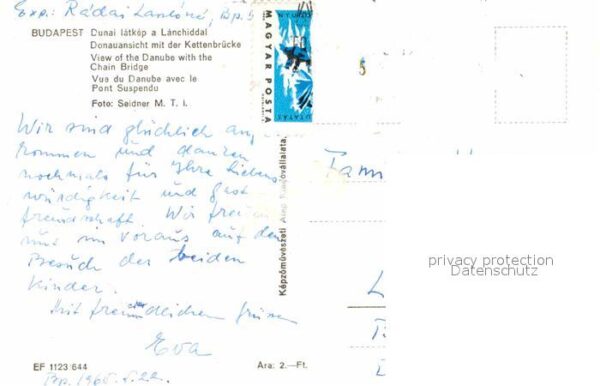 Exp.: Rádai Lászlóné, Bp. 5
BUDAPEST Dunai látkép a Lánchiddal
Donauansicht mit der Kettenbrücke
View of the Danube with the
Chain Bridge
Vue du Danube avec le
Pont Suspendu
Foto: Seidner M. T. I.
MAGYAR POSTA
5
Wir sind glücklich ange
kommen und danken
nochmals für Ihre Liebens
würdigkeit und Gast
freundschaft. Wir freuen
uns im voraus auf den
Besuch der beiden
Kinder.
Mit freundlichen Grüssen
Eva
Bp. 1965. 5. 22.
EF 1123/644
Ara: 2.—Ft.
Képzőművészeti Alap Kiadóvállalata,
Fam
privacy protection
Datenschutz